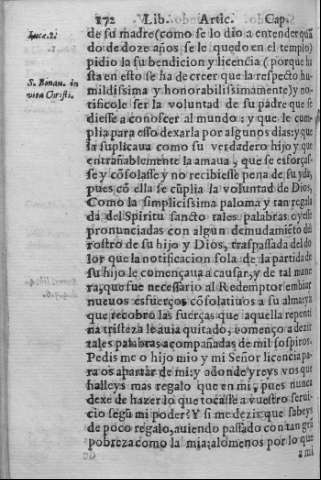 172 Lib. Artic. Cap.
Luca. 2.
de su madre (como se lo dio a entender quã
do de doze años se le quedo en el templo)
pidio la su bendicion y licencia (porque ha
sta en esto se ha de creer que la respecto hu-
S. Bonau. in
vita Christi.
mildissima y honorabilissimamente) y no-
tificole ser la voluntad de su padre que se
diesse a conoscer al mundo: y que le cum-
plia para esso dexarla por algunos dias: y que
la suplicaua como su verdadero hijo y que
entrañablemente la amaua, que se esforças-
se y cõsolasse y no recibiesse pena de su yda,
pues cõ ella se cũplia la voluntad de Dios,
Como la simplicissima paloma y tan regala
da del Spiritu sancto tales palabras oyesse
pronunciadas con algun demudamiẽto del
rostro de su hijo y Dios, traspassada del do
lor que la notificacion sola de la partida de
su hijo le començaua a causar, y de tal mane
ra, que fue necessario al Redemptor embiar
nueuos esfuerços cõsolatiuos a su alma: ya
que recobro las fuerças que aquella repenti
na tristeza le auia quitado, començo a dezir
tales palabras acompañadas de mil sospiros.
Pedis me o hijo mio y mi Señor licencia pa-
ra os apartar de mi: y adonde yreys vos que
halleys mas regalo que en mi, pues nunca
dexe de hazer lo que tocasse a vuestro serui-
cio segũ mi poder? Y si me dezis que sabeys
de poco regalo, auiendo passado con tan grã
pobreza como la mia: alomenos por lo que
a mi